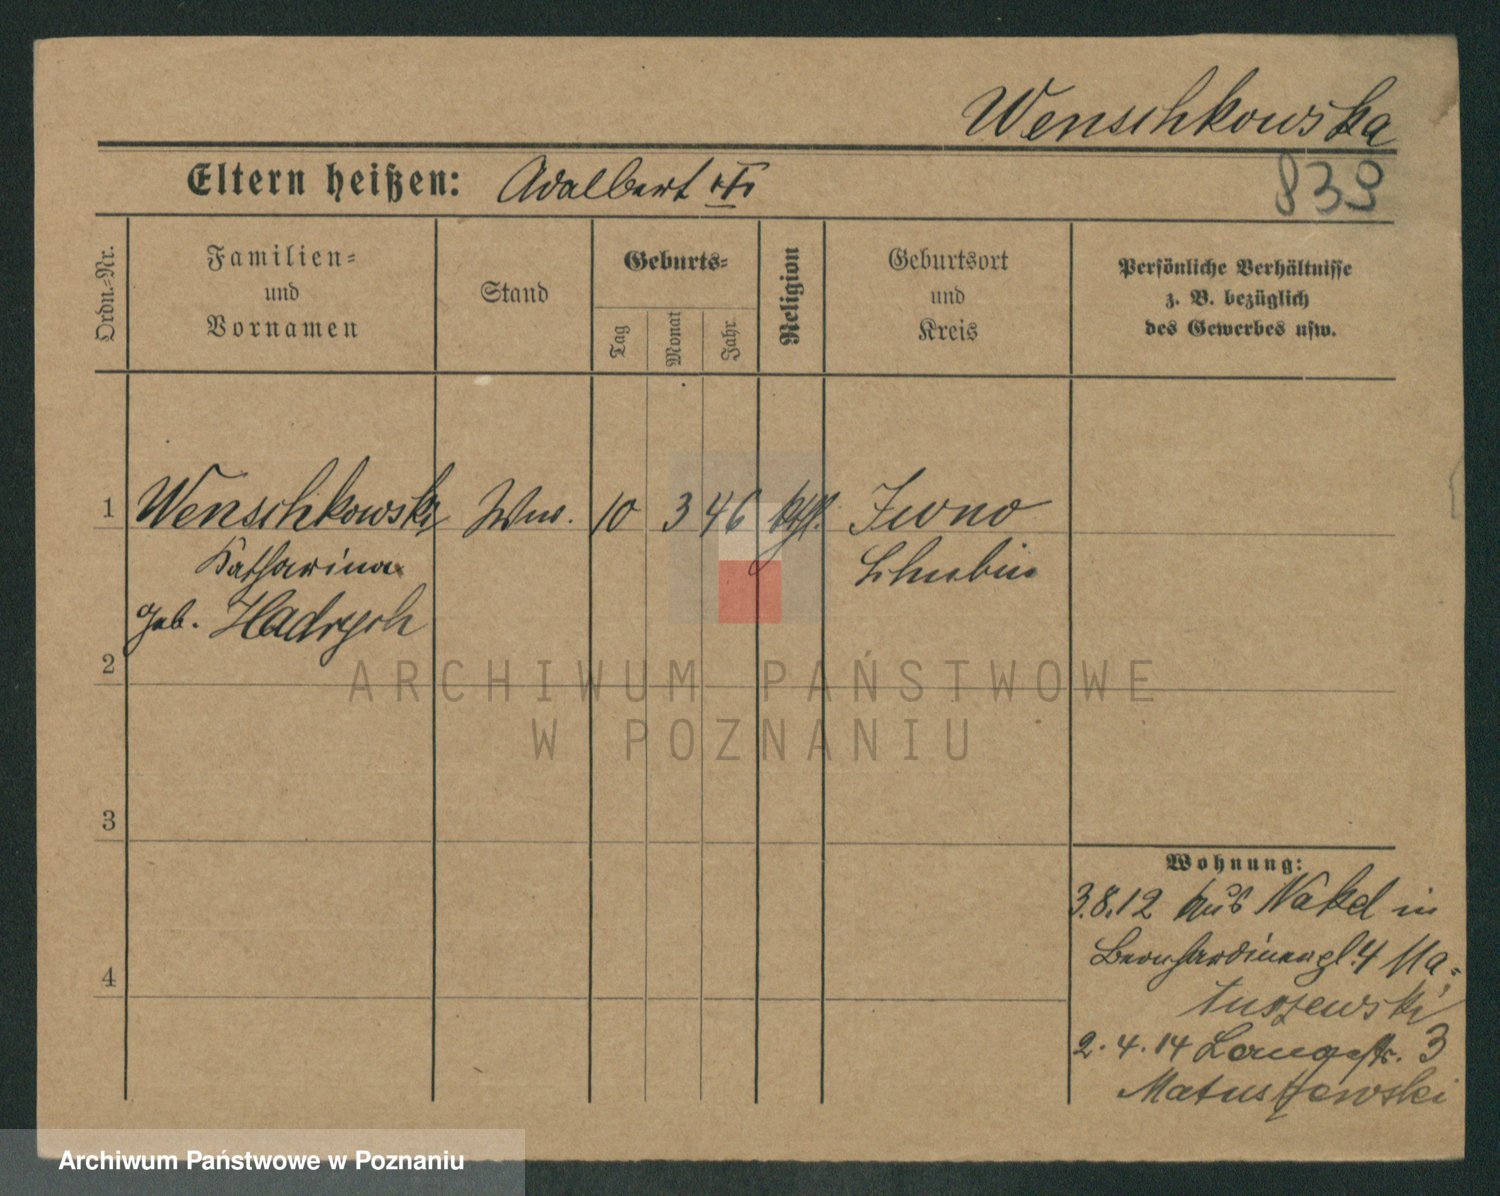 Wenschkowska
Eltern heißen: Adalbert
839
Ordn.=Nr.
Familien=
und
Vornamen
Stand
Geburts=
Tag
Monat
Jahr
Religion
Geburtsort
und
Kreis
Persönliche Verhältnisse
z. B. bezüglich
des Gewerbes usw.
1 Wenschkowski Ww. 10 3 46 kath. Iwno
Katharina Schubin
geb. Hadrych
2
3
4
Wohnung:
3.8.12 aus Nakel in
Bernhardinerpl. 4 Ma=
tuszewski
2.4.14 Langestr. 3
Matuszewski
ARCHIWUM PAŃSTWOWE
W POZNANIU
Archiwum Państwowe w Poznaniu